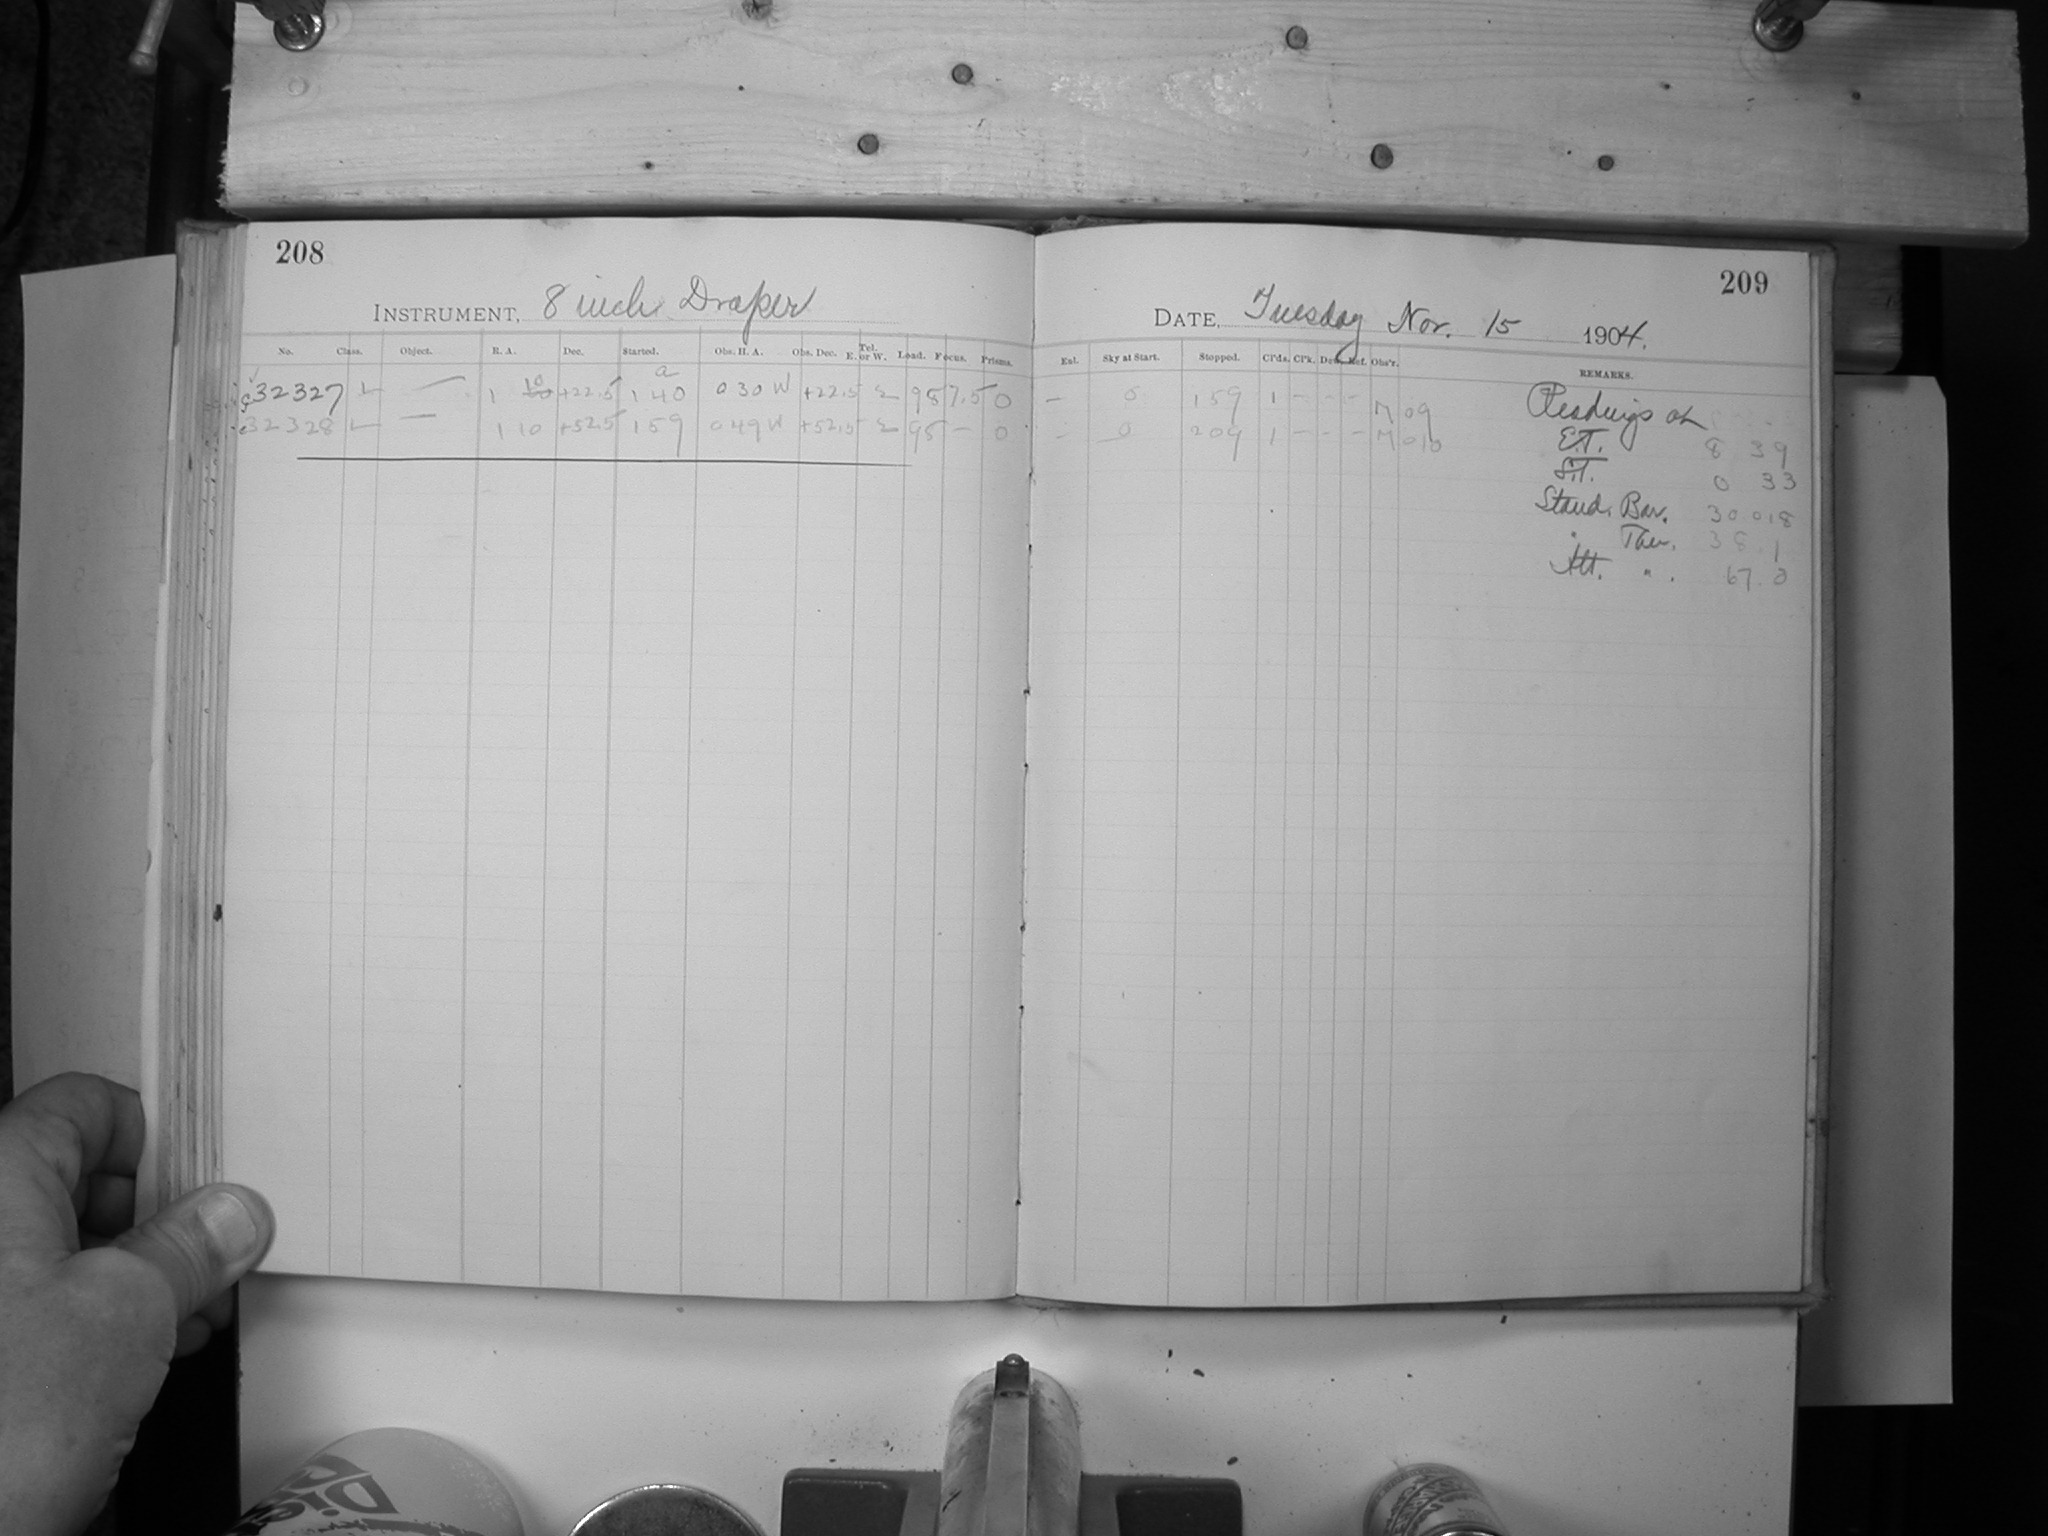 208
INSTRUMENT, 8 inch Draper
No. Class. Object. R. A. Dec. Started. Obs. H. A. Obs. Dec. Tel. E. or W. Load. Focus. Prisms.
a
32327 L — 1 10 +22.5 1 40 0 30 W +22.5 E 95 7.5 0
32328 L — 1 10 +52.5 1 59 0 49 W +52.5 E 95 — 0
209
DATE, Tuesday Nov. 15 1904.
Ent. Sky at Start. Stopped. Cl'ds. Cl'k. Dew. Ref. Obs'r. REMARKS.
– 0 1 59 1 – – – M 09 Readings at
– 0 2 09 1 – – – M 010 E.T. 8 39
S.T. 0 33
Stand. Bar. 30.018
" Ther. 38.1
Att. " . 67.0